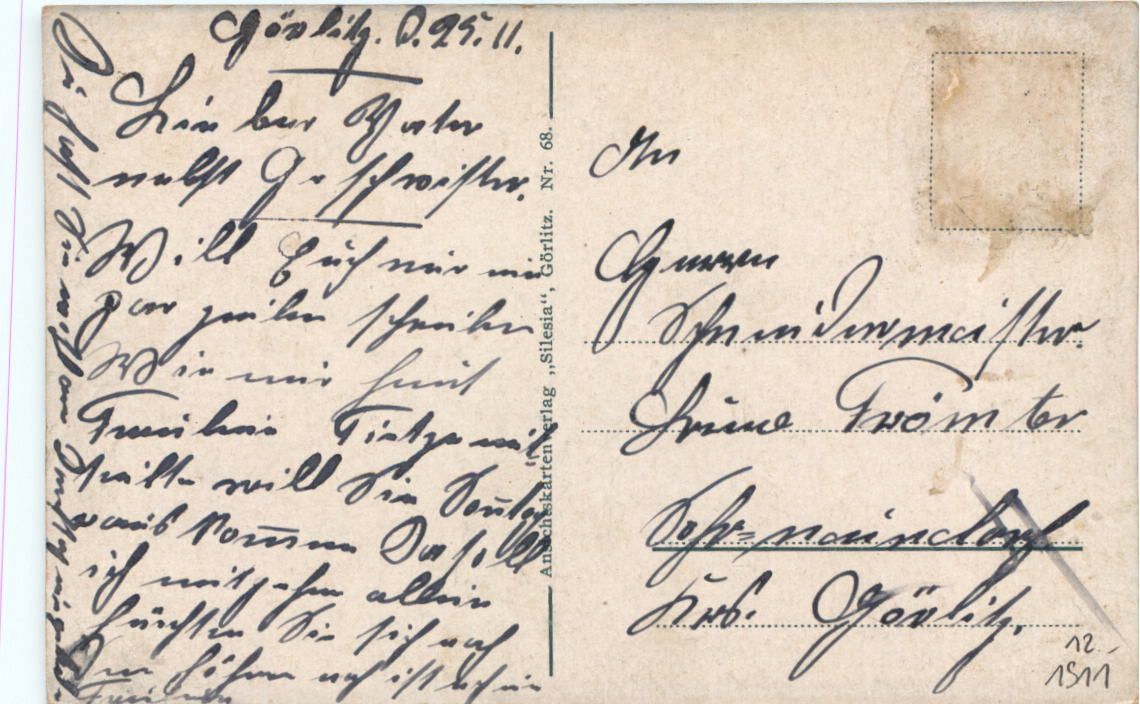 Görlitz. d. 25. 11.
Lieber Vater
nebst Geschwister.
Will Euch nur ein
par zeilen schreiben
Wie mir heut
Fräulein Tietze mit
teilte will Sie Sontag
raus kommen Da soll
ich mitgehen allein
fürchten Sie sich
ist
Ansichtskartenverlag „Silesia“, Görlitz. Nr. 68.
An
Herrn
Schneidermeister
Frömter
Sohr-neundorf
Krs. Görlitz.
12.
1911